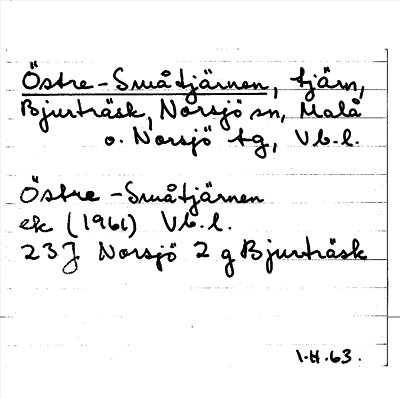 Östre-Småtjärnen, tjärn,
Bjurträsk, Norsjö sn, Malå
o. Norsjö tg, Vb.l.
Östre-Småtjärnen
ek (1961) Vb.l.
23J Norsjö 2 g Bjurträsk
1.H.63.